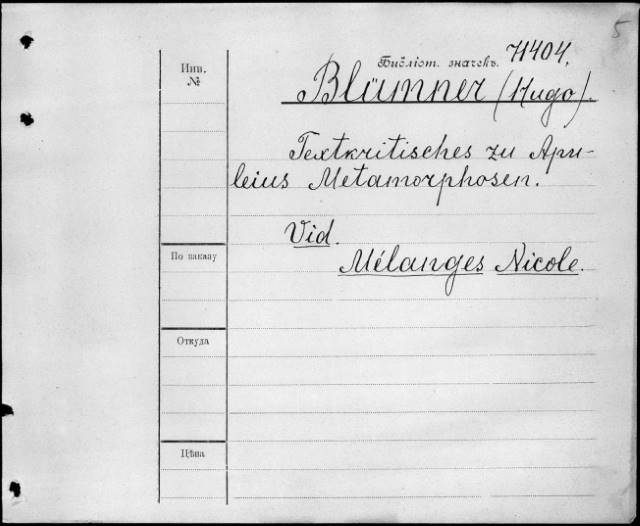 5
Инв.
№
Библіот. значекъ. 71404.
Blümner (Hugo).
Textkritisches zu Apu-
leius Metamorphosen.
Vid.
Mélanges Nicole.
По заказу
Откуда
Цѣна